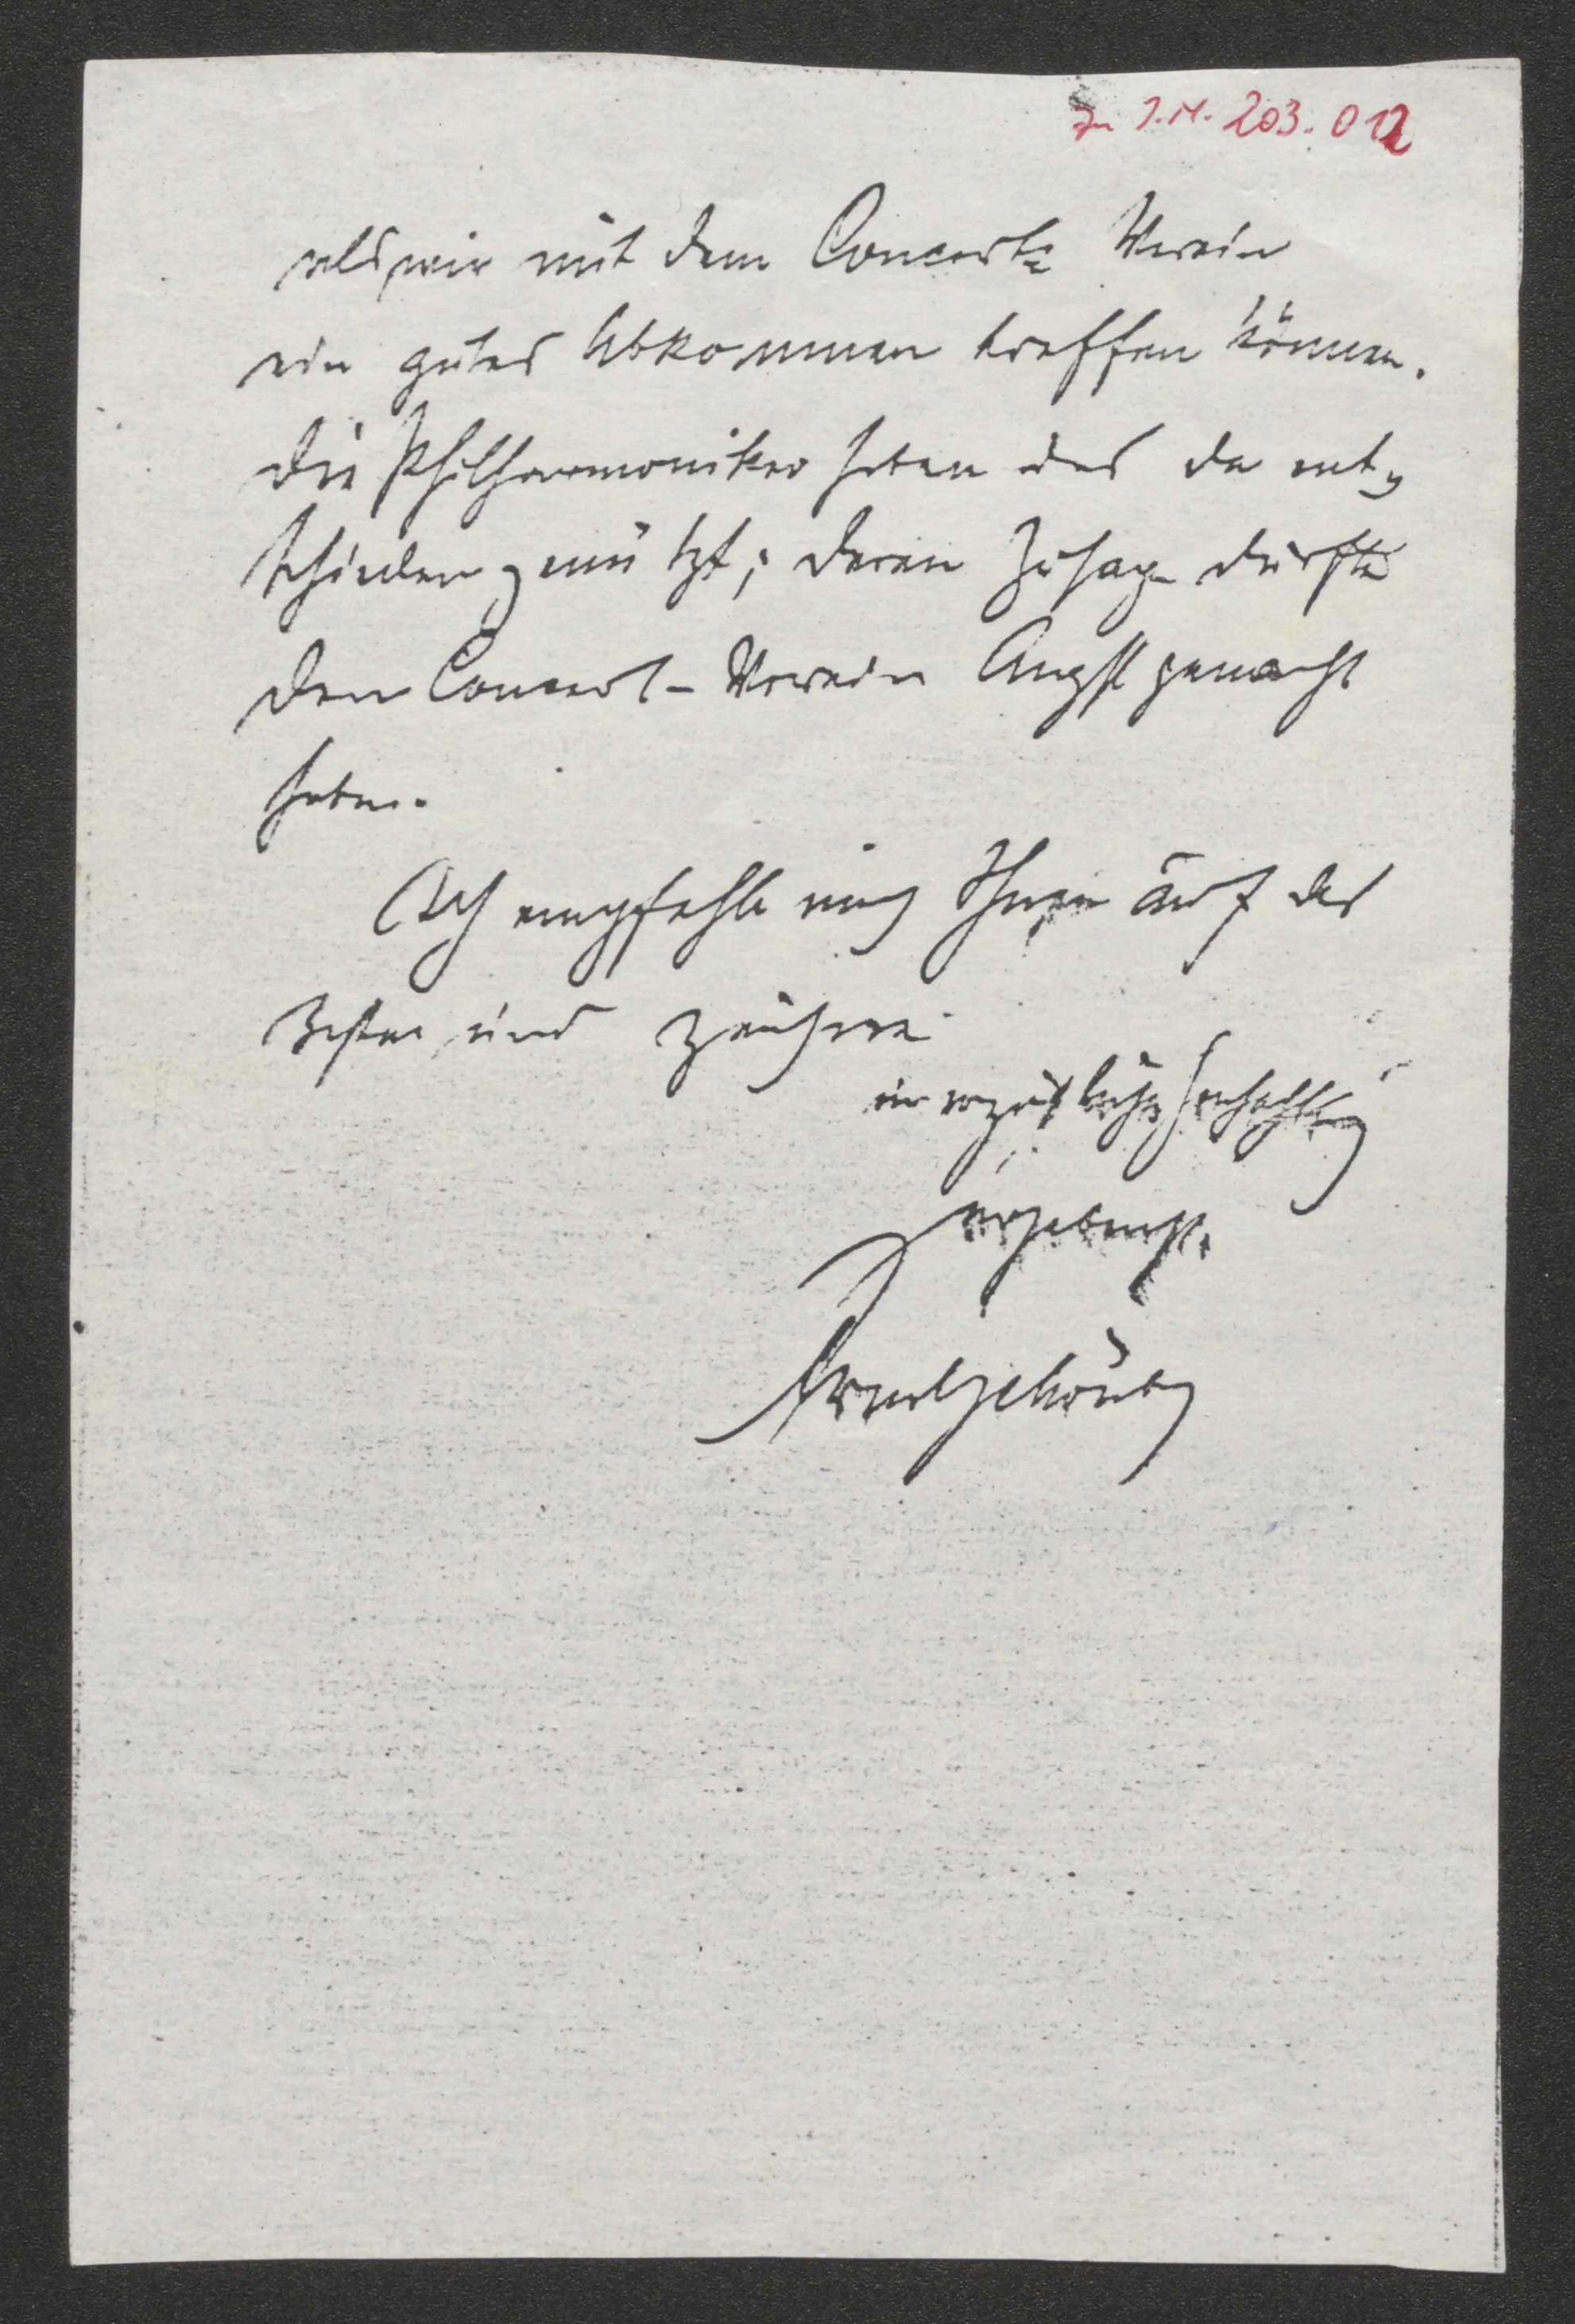 Zu I.N. 203.012
als wir mit dem Concert= Verein
ein gutes Abkommen treffen können.
Die Philharmoniker haben uns da ent-
schieden genützt; deren Zusage dürfte
dem Concert-Verein Angst gemacht
haben.
Ich empfehle mich Ihnen auf das
Beste und zeichne
in vorzüglicher Hochachtung
ergebenst
Arnold Schönberg